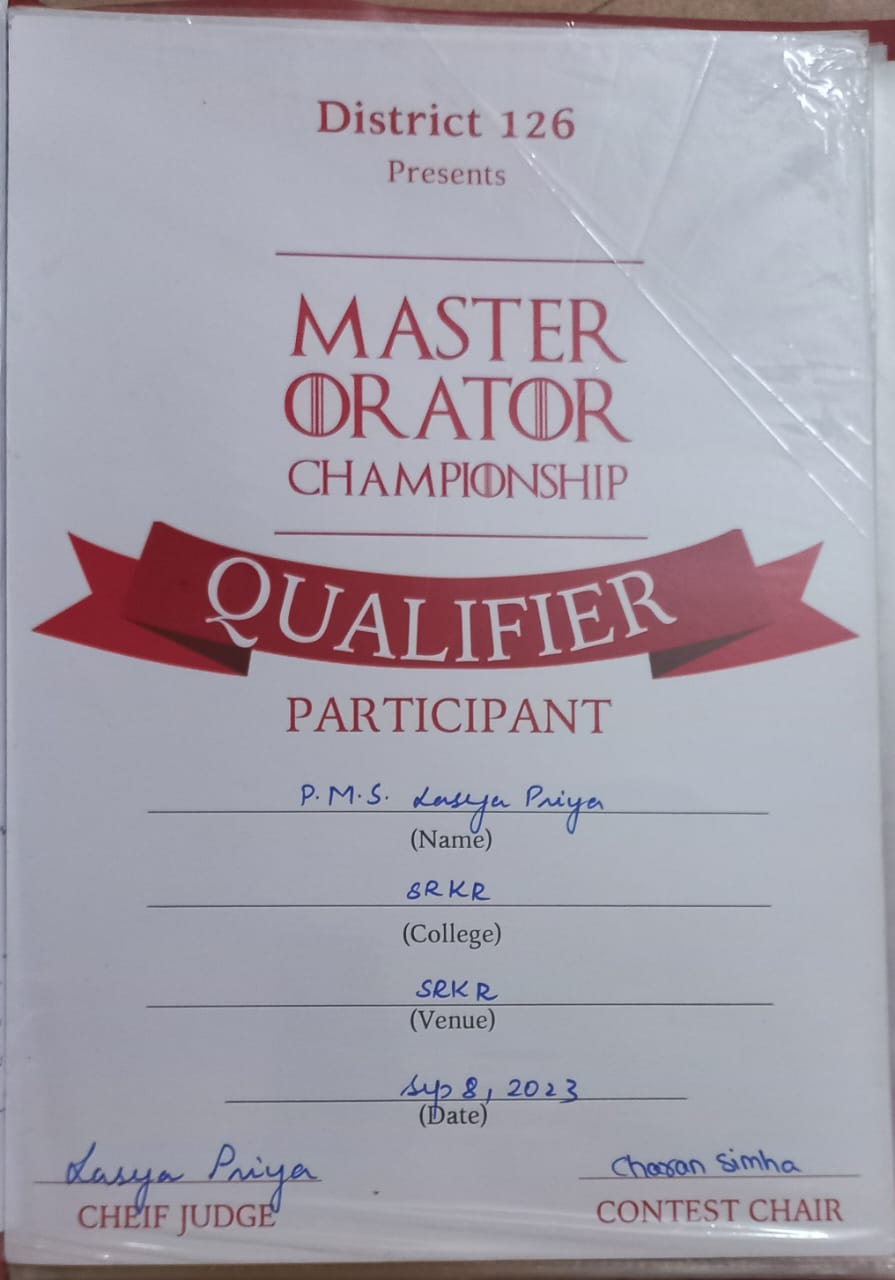 District 126
Presents
MASTER
ORATOR
CHAMPIONSHIP
QUALIFIER
PARTICIPANT
P.M.S. Lasya Priya
(Name)
SRKR
(College)
SRKR
(Venue)
Sep 8, 2023
(Date)
Lasya Priya
CHEIF JUDGE
Charan Simha
CONTEST CHAIR